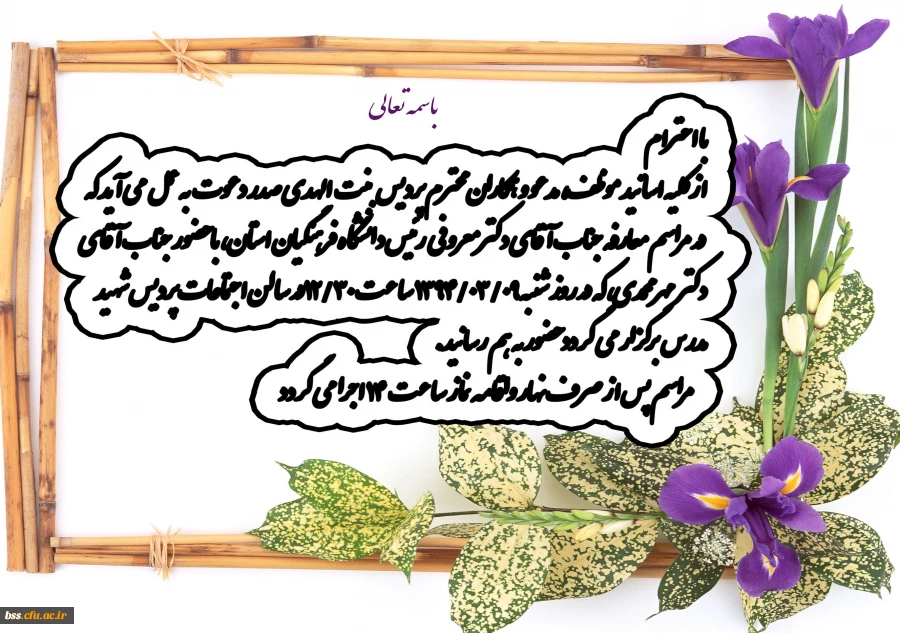 باسمه تعالی
با احترام
از کلیه اساتید موظف، مدعو و همکاران محترم پردیس بنت الهدی صدر دعوت به عمل می آید که
در مراسم معارفه جناب آقای دکتر معروفی رئیس دانشگاه فرهنگیان استان، با حضور جناب آقای
دکتر مهرمحمدی، که در روز شنبه ۱۳۹۴/۰۳/۰۹ ساعت ۱۲/۳۰ در سالن اجتماعات پردیس شهید
مدرس برگزار می گردد حضور به هم رسانید.
مراسم پس از صرف نهار و اقامه نماز ساعت ۱۴ اجرا می گردد
bss.cfu.ac.ir